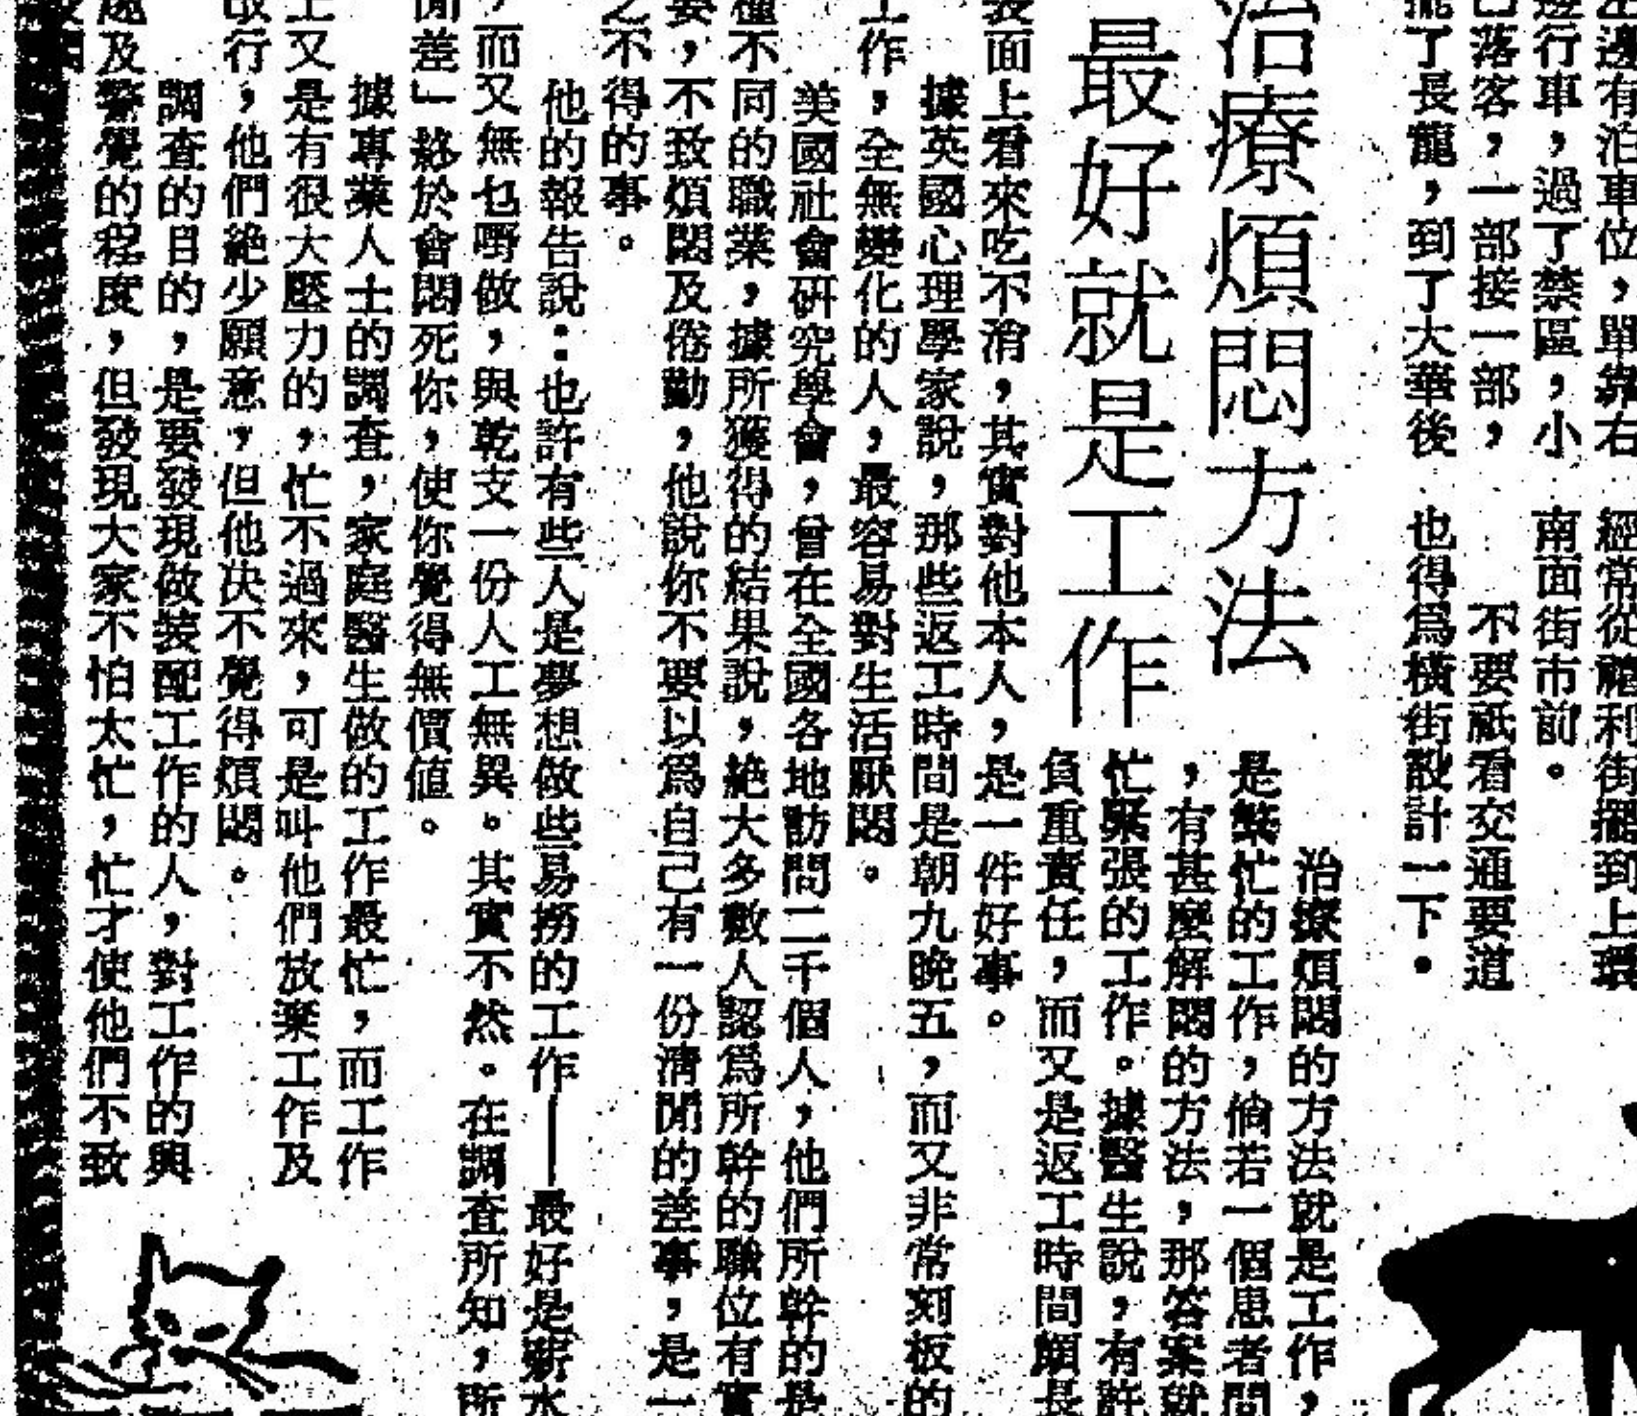 左邊有泊車位，單靠右
邊行車，過了禁區，小
巴落客，一部接一部，
了長龍，到了大華後
經常從禧利街擺到上環
南面街市前。
不要祇看交通要道
也得爲橫街設計一下。
治療煩悶方法
最好就是工作
治療煩悶的方法就是工作，
是繁忙的工作，倘若一個患者問
，有甚麼解悶的方法，那答案就
忙緊張的工作。據醫生說，有許
負重責任，而又是返工時間頗長
表面上看來吃不消，其實對他本人，是一件好事。
據英國心理學家說，那些返工時間是朝九晚五，而又非常刻板的
工作，全無變化的人，最容易對生活厭悶。
美國社會研究學會，曾在全國各地訪問二千個人，他們所幹的是
種不同的職業，據所獲得的結果說，絶大多數人認爲所幹的職位有實
要，不致煩悶及倦勤，他說你不要以爲自己有一份清閒的差事，是一
之不得的事。
他的報告說：也許有些人是夢想做些易撈的工作——最好是薪水
，而又無乜嘢做，與乾支一份人工無異。其實不然。在調查所知，所
閒差」終於會悶死你，使你覺得無價值。
據專業人士的調查，家庭醫生做的工作最忙，而工作
上又是有很大壓力的，忙不過來，可是叫他們放棄工作及
改行，他們絶少願意，但他决不覺得煩悶。
調查的目的，是要發現做裝配工作的人，對工作的興
趣及警覺的程度，但發現大家不怕太忙，忙才使他們不致